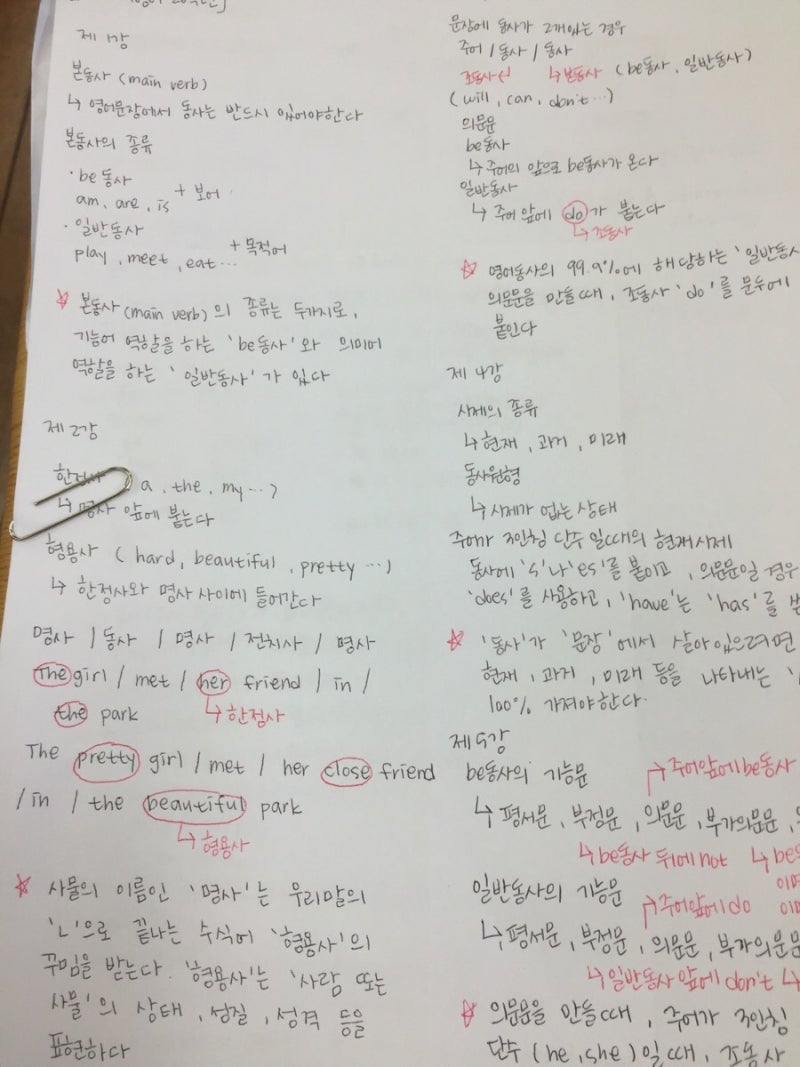 제 1강
본동사 (main verb)
↳ 영어문장에서 동사는 반드시 있어야한다
본동사의 종류
· be 동사
am, are, is + 보어
· 일반동사
play, meet, eat … + 목적어
☆ 본동사 (main verb) 의 종류는 두가지로,
기능어 역할을 하는 'be동사'와 의미어
역할을 하는 '일반동사'가 있다
제 2강
a, the, my …)
↳ 명사 앞에 붙는다
형용사 (hard, beautiful, pretty …)
↳ 한정사와 명사 사이에 들어간다
명사 / 동사 / 명사 / 전치사 / 명사
The girl / met / her friend / in /
the park ↳ 한정사
The pretty girl / met / her close friend
/ in / the beautiful park
↳ 형용사
☆ 사물의 이름인 '명사'는 우리말의
'ㄴ'으로 끝나는 수식어 '형용사'의
꾸밈을 받는다. '형용사'는 '사람 또는
사물'의 상태, 성질, 성격 등을
표현하다
문장에 동사가 2개있는 경우
주어 / 동사 / 동사
조동사↵ ↳본동사 (be동사, 일반동사)
(will, can, don't …)
의문문
be동사
↳ 주어의 앞으로 be동사가 온다
일반동사
↳ 주어 앞에 do가 붙는다
↳ 조동사
☆ 영어동사의 99.9%에 해당하는 '일반동사
의문문을 만들때, 조동사 'do'를 문두에
붙인다
제 4강
시제의 종류
↳ 현재, 과거, 미래
동사원형
↳ 시제가 없는 상태
주어가 3인칭 단수 일때의 현재시제
동사에 's'나 'es'를 붙이고, 의문문일 경우
'does'를 사용하고, 'have'는 'has'를
☆ '동사'가 '문장'에서 살아있으려면
현재, 과거, 미래 등을 나타내는
100% 가져야한다.
제 5강
be동사의 기능문 ↱주어앞에 be동사
↳ 평서문, 부정문, 의문문, 부가의문문,
↳ be동사 뒤에 not ↳ be동
일반동사의 기능문
↱주어앞에 do
↳ 평서문, 부정문, 의문문, 부가의문문
↳ 일반동사 앞에 don't ↳
☆ 의문문을 만들때, 주어가 3인칭
단수 (he, she) 일때, 조동사